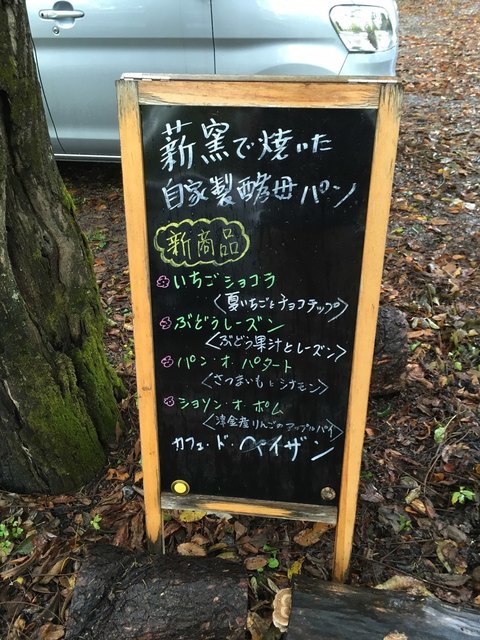 薪窯で焼いた
自家製酵母パン
新商品
いちごショコラ
〈夏いちごとチョコチップ〉
ぶどうレーズン
〈ぶどう果汁とレーズン〉
パン・オ・パタート
〈さつまいもとシナモン〉
ショソン・オ・ポム
〈津金産りんごのアップルパイ〉
カフェ・ド・ペイザン